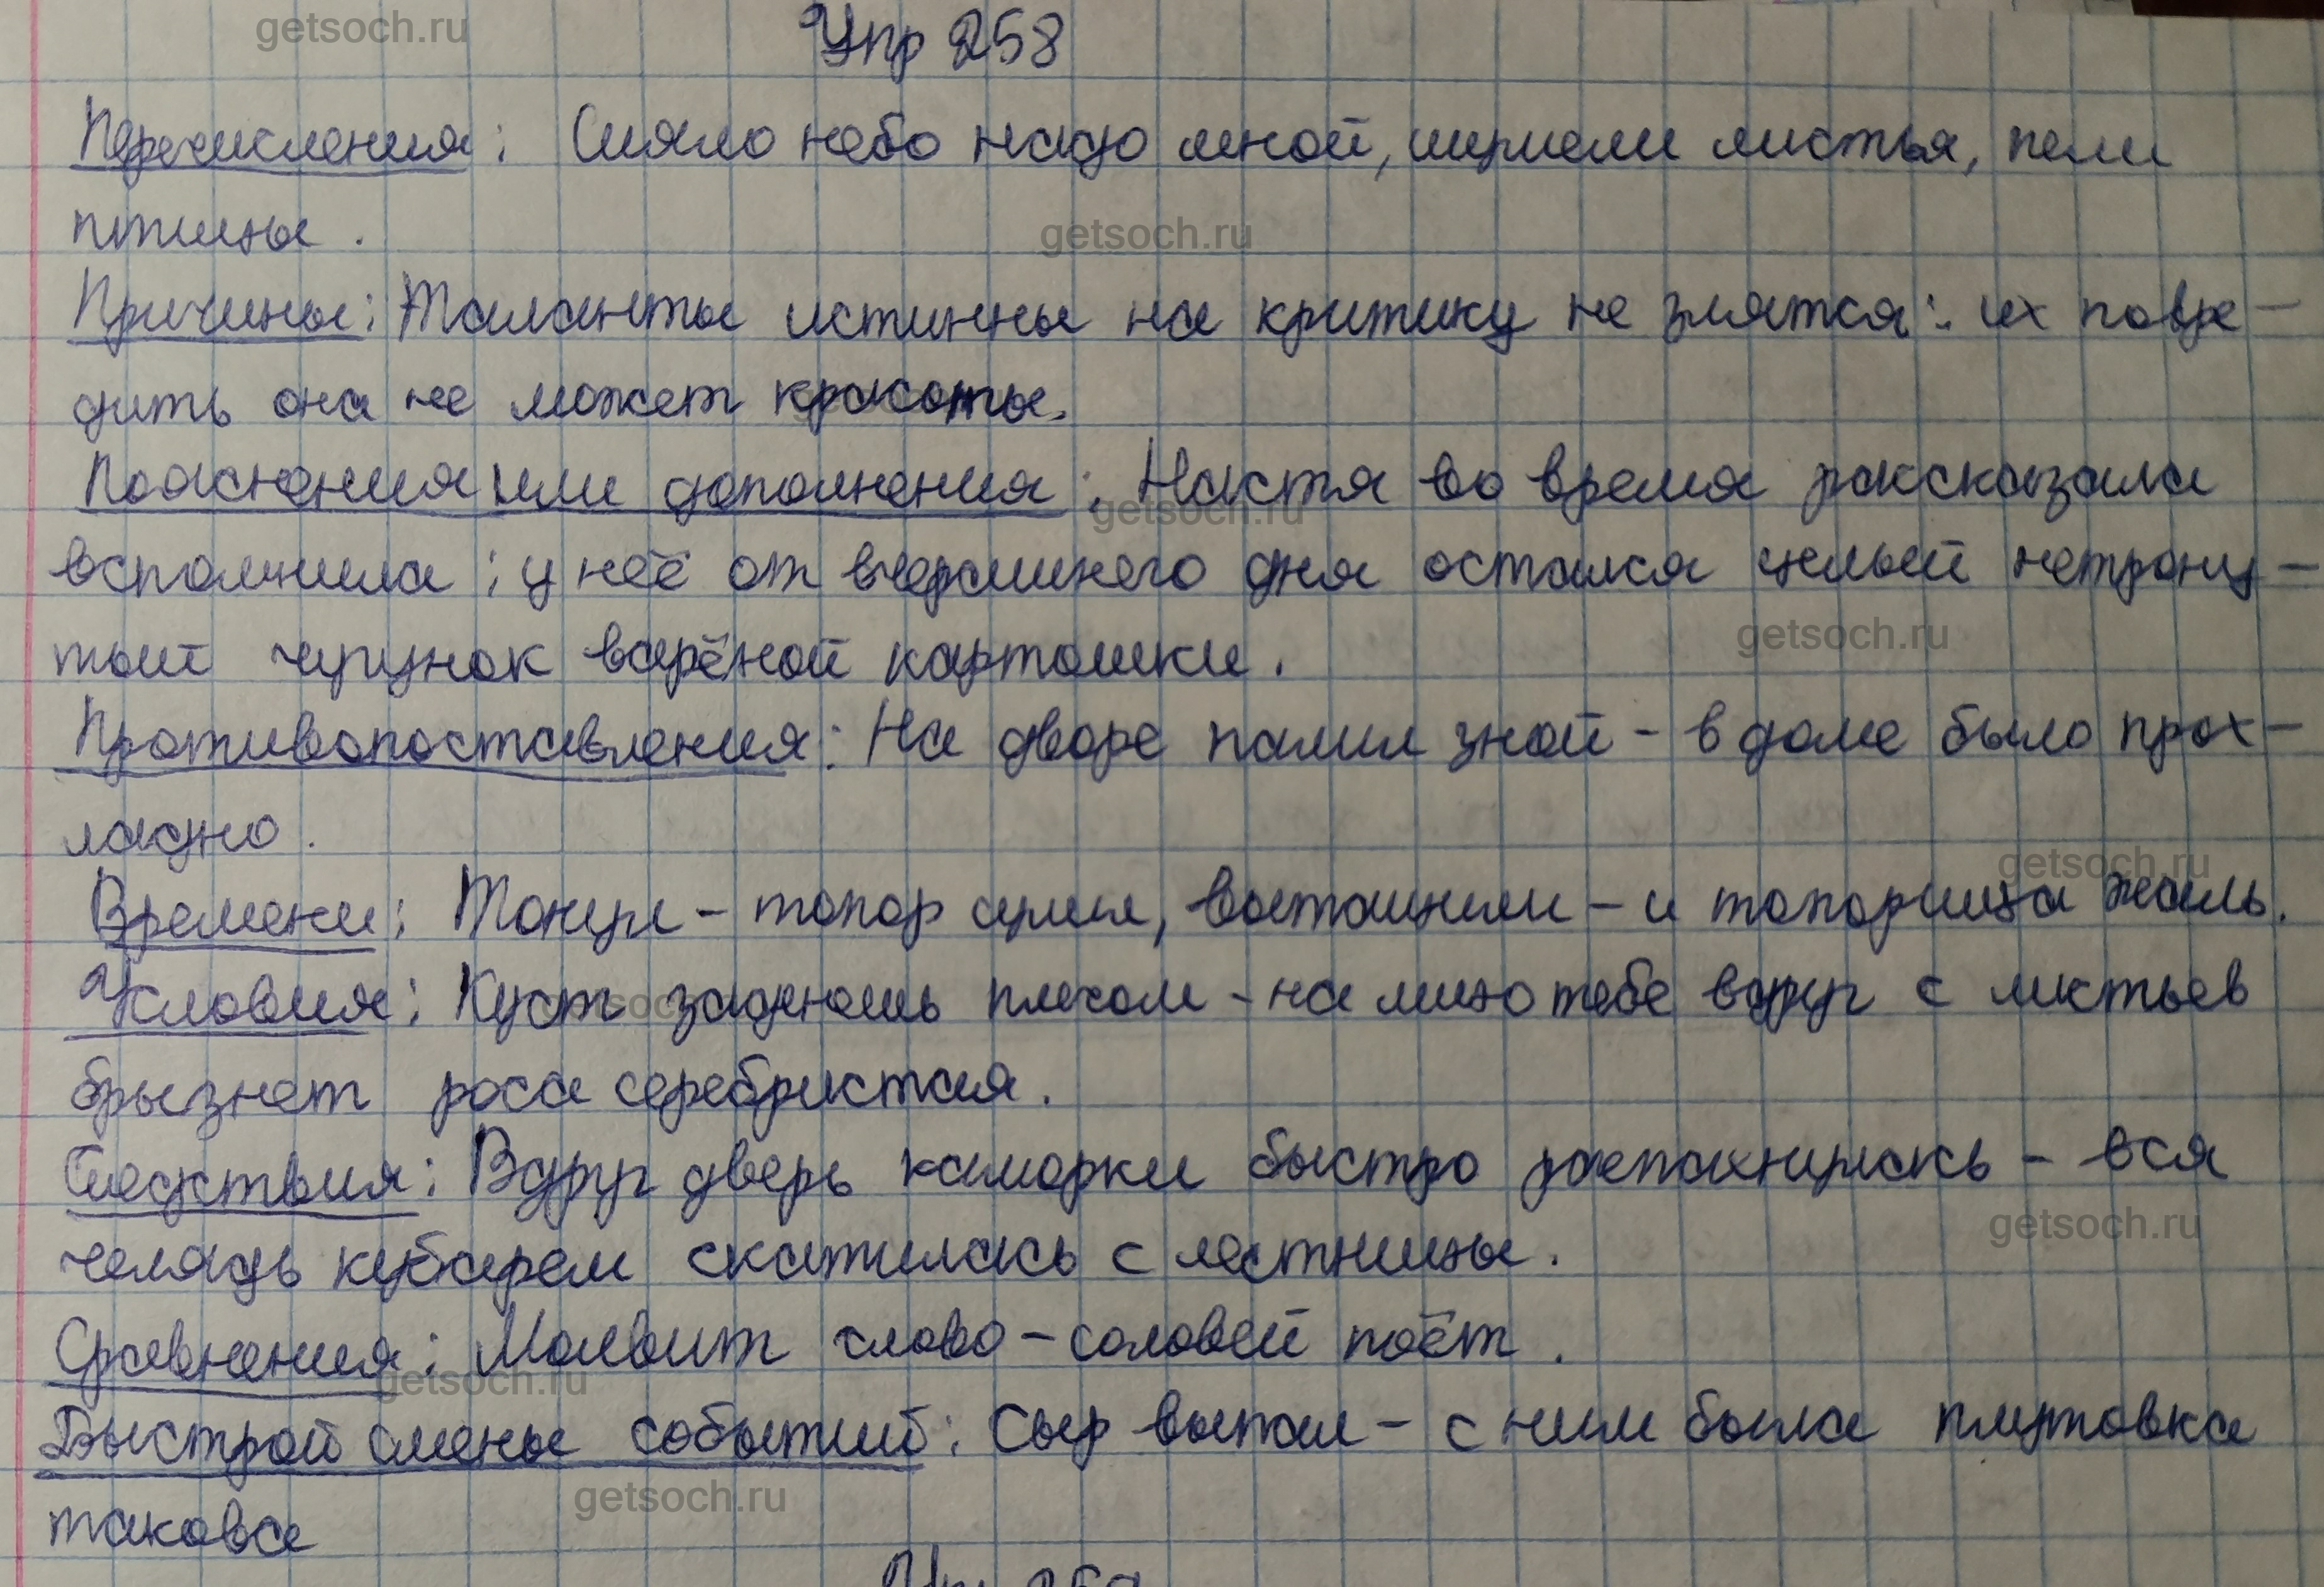 Упр 258
Перечисления: Сияло небо надо мной, шумели листья, пели
птицы.
Причины: Таланты истинны на критику не злятся: их повре-
дить она не может красоты.
Пояснения или дополнения: Настя во время рассказала
вспомнила: у неё от вчерашнего дня остался целый нетрону-
тый чугунок варёной картошки.
Противопоставления: На дворе палил зной - в доме было прох-
ладно.
Времени: Тонул - топор сулил, вытащили - и топорища жаль.
Условия: Куст заденешь плечом - на лицо тебе вдруг с листьев
брызнет роса серебристая.
Следствия: Вдруг дверь каморки быстро распахнулась - вся
челядь кубарем скатилась с лестницы.
Сравнения: Молвит слово - соловей поёт.
Быстрой смены событий: Сыр выпал - с ним была плутовка
такова
Упр 259
getsoch.ru
getsoch.ru
getsoch.ru
getsoch.ru
getsoch.ru
getsoch.ru
getsoch.ru
getsoch.ru
getsoch.ru